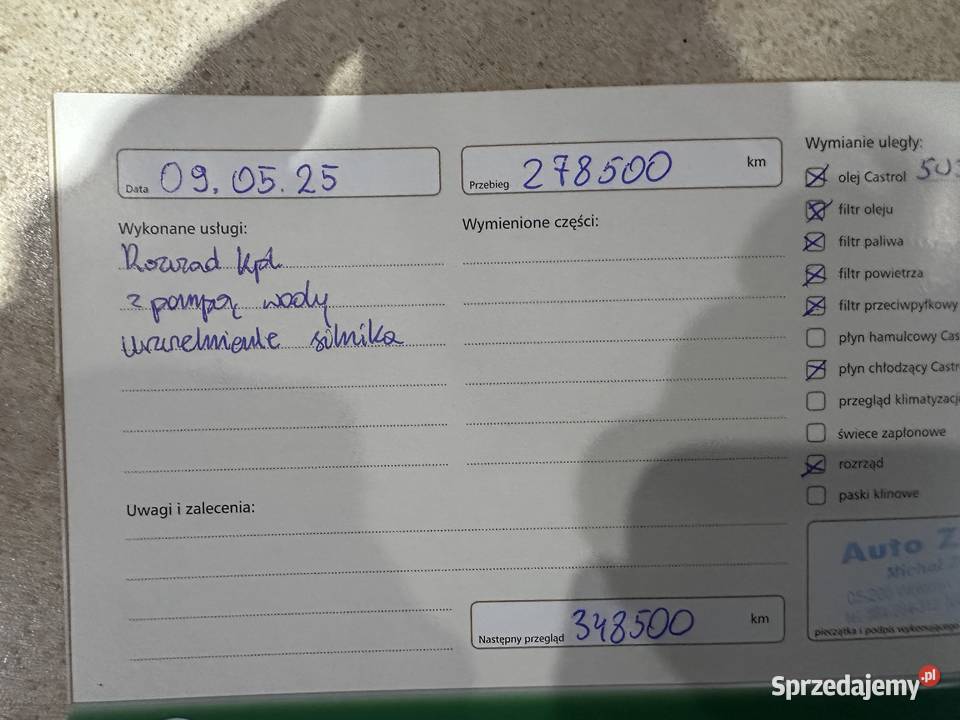 Data 09.05.25
Przebieg 278500 km
Wykonane usługi:
Rozrząd kpl.
z pompą wody
uszczelnienie silnika
Wymienione części:
Uwagi i zalecenia:
Następny przegląd 348500 km
Wymianie uległy:
olej Castrol
filtr oleju
filtr paliwa
filtr powietrza
filtr przeciwpyłkowy
płyn hamulcowy Cas
płyn chłodzący Castr
przegląd klimatyzacj
świece zapłonowe
rozrząd
paski klinowe
Auto Z
Michał
05-200
pieczątka i podpis wykonującego
Sprzedajemy.pl